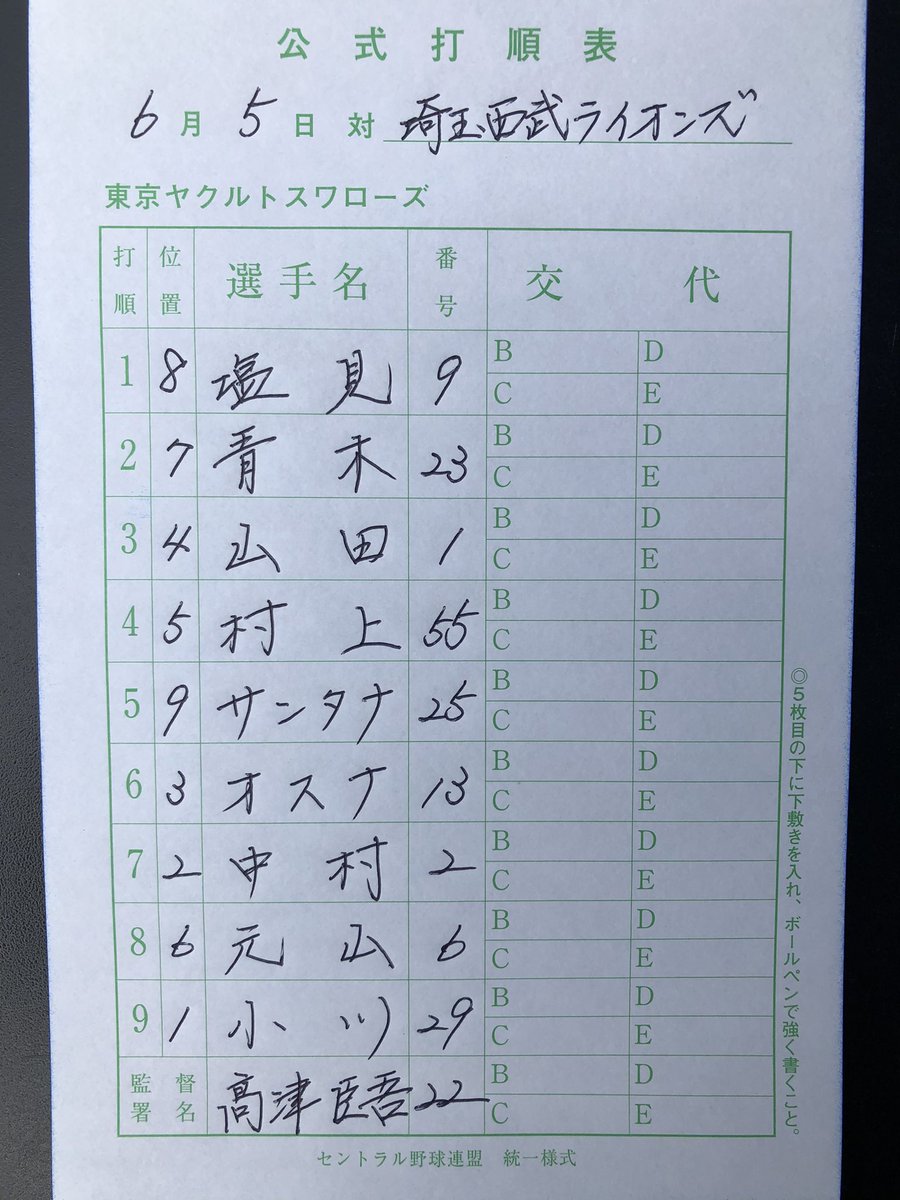 公式打順表
6月5日対 埼玉西武ライオンズ
東京ヤクルトスワローズ
打順 位置 選手名 番号 交代
1 8 塩見 9 B D C E
2 7 青木 23 B D C E
3 4 山田 1 B D C E
4 5 村上 55 B D C E
5 9 サンタナ 25 B D C E
6 3 オスナ 13 B D C E
7 2 中村 2 B D C E
8 6 元山 6 B D C E
9 1 小川 29 B D C E
監督署名 高津臣吾 22 B D C E
◎5枚目の下に下敷きを入れ、ボールペンで強く書くこと。
セントラル野球連盟 統一様式